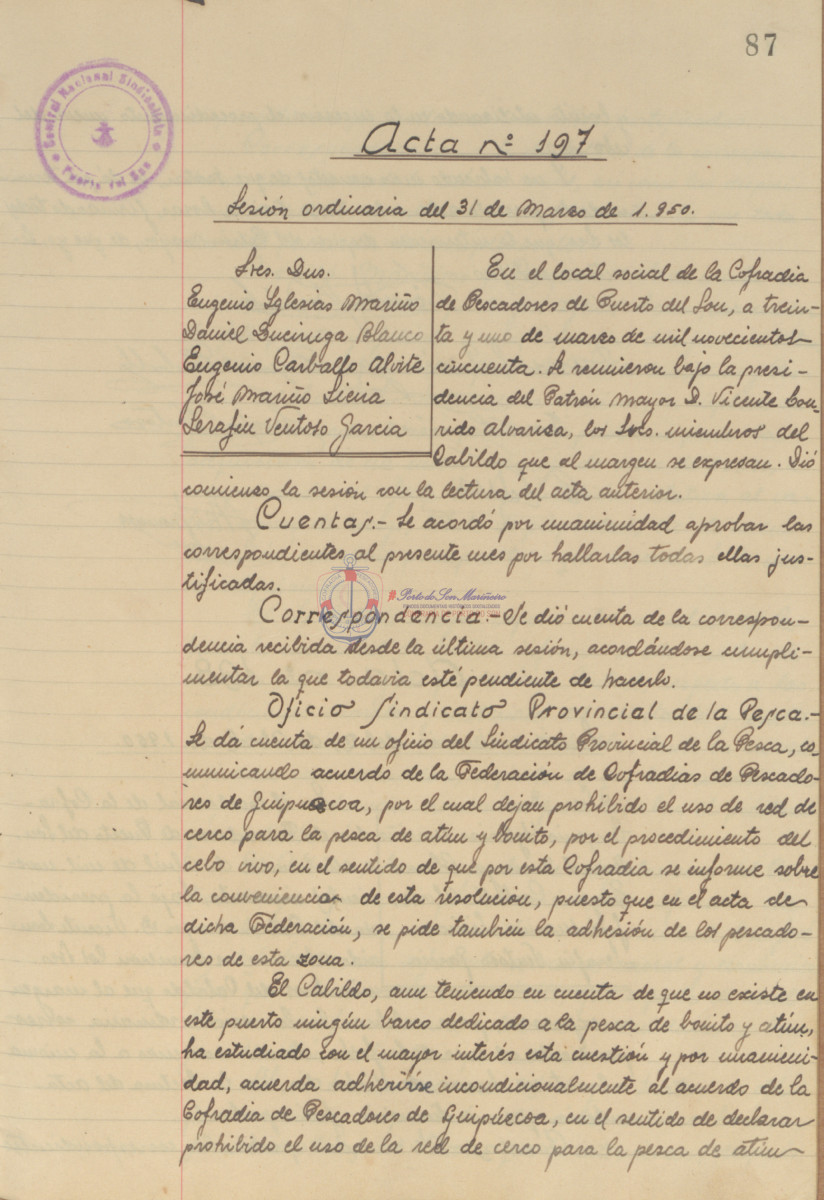 87
Central Nacional Sindicalista
Puerto del Son
Acta nº 197
Sesión ordinaria del 31 de Marzo de 1.950.
Sres. Dns.
Eugenio Yglesias Mariño
Daniel Blanco
Eugenio Carballo Alvite
José Mariño
Serafin Ventoso Garcia
En el local social de la Cofradia
de Pescadores de Puerto del Son, a trein-
ta y uno de marzo de mil novecientos
cincuenta. Se reunieron bajo la presi-
dencia del Patrón Mayor D. Vicente
los Sres. miembros del
Cabildo que al margen se expresan. Dió
comienzo la sesión con la lectura del acta anterior.
Cuentas.- Se acordó por unanimidad aprobar las
correspondientes al presente mes por hallarlas todas ellas jus-
tificadas.
Porto do Son Mariñeiro
Correspondencia.- Se dió cuenta de la correspon-
dencia recibida desde la última sesión, acordándose cumpli-
mentar la que todavia esté pendiente de hacerlo.
Oficio Sindicato Provincial de la Pesca.-
Se dá cuenta de un oficio del Sindicato Provincial de la Pesca, co-
municando acuerdo de la Federación de Cofradias de Pescado-
res de Guipuzcoa, por el cual dejan prohibido el uso de red de
cerco para la pesca de atún y bonito, por el procedimiento del
cebo vivo, en el sentido de que por esta Cofradia se informe sobre
la conveniencia de esta resolución, puesto que en el acta de
dicha Federación, se pide también la adhesión de los pescado-
res de esta zona.
El Cabildo, aun teniendo en cuenta de que no existe en
este puerto ningún barco dedicado a la pesca de bonito y atún,
ha estudiado con el mayor interés esta cuestión y por unanimi-
dad, acuerda adherirse incondicionalmente al acuerdo de la
Cofradia de Pescadores de Guipúzcoa, en el sentido de declarar
prohibido el uso de la red de cerco para la pesca de atún